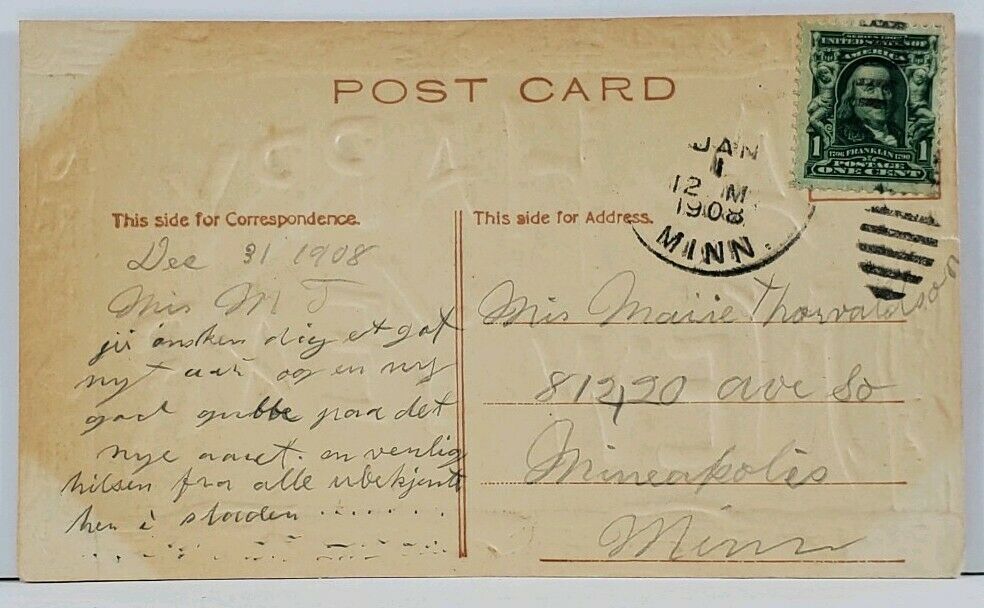 POST CARD
SERIES 1902
UNITED STATES OF
AMERICA
1 1706 FRANKLIN 1790 1
POSTAGE
ONE CENT
JAN
1
12 M
1908
MINN.
This side for Correspondence.
Dec 31 1908
Mis M T
jii ønsken dig et got
nyt aar og en ny
god gubbe paa det
nye aaret. en venlig
hilsen fra alle ubekjente
her i staden
This side for Address.
Mis Marie Thorvaldson
812, 20 ave So
Mineapolis
Minn